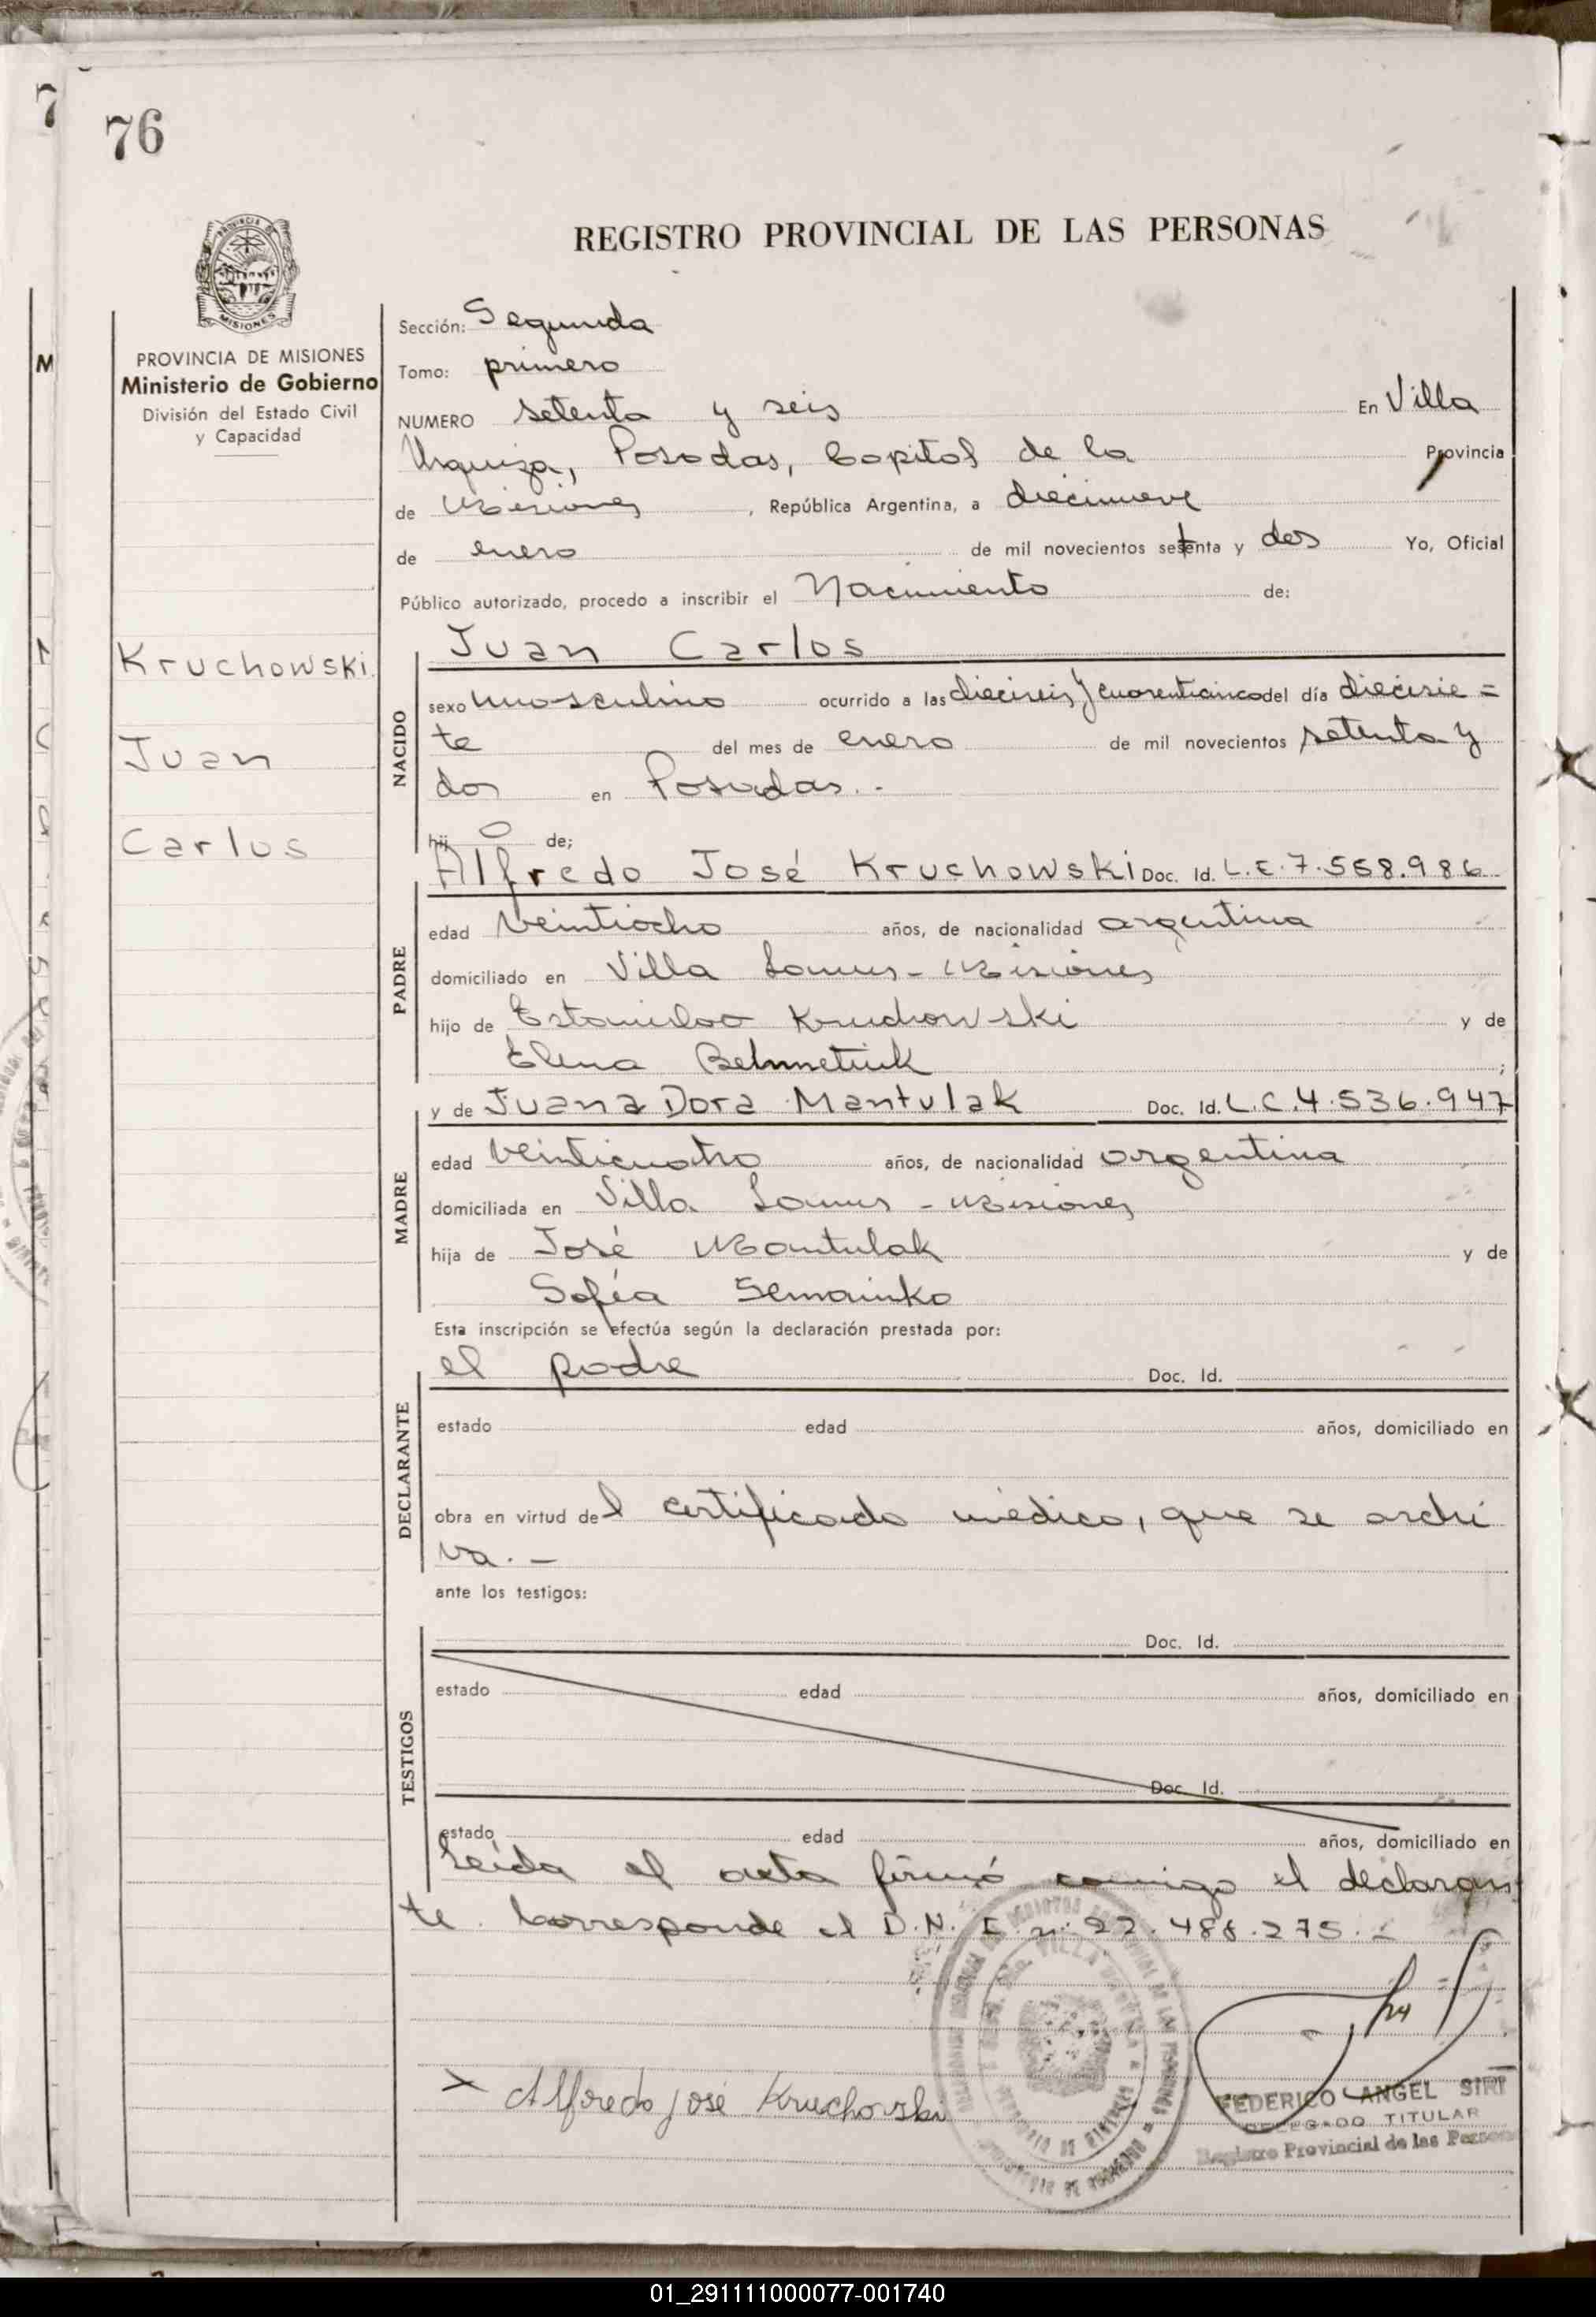 76
REGISTRO PROVINCIAL DE LAS PERSONAS
MISIONES
PROVINCIA DE MISIONES
Ministerio de Gobierno
División del Estado Civil
y Capacidad
Kruchowski
Juan
Carlos
Sección: Segunda
Tomo: primero
NUMERO setenta y seis En Villa
Urquiza, Posadas, Capital de la Provincia
de Misiones, República Argentina, a diecinueve
de enero de mil novecientos setenta y dos Yo, Oficial
Público autorizado, procedo a inscribir el Nacimiento de:
NACIDO
Juan Carlos
sexo masculino ocurrido a las dieciseis y cuarenticinco del día diecisie=
te del mes de enero de mil novecientos setenta y
dos en Posadas.-
hijo de;
PADRE
Alfredo José Kruchowski Doc. Id. L.E.7.558.986
edad veintiocho años, de nacionalidad argentina
domiciliado en Villa Lanus - Misiones
hijo de Estanislao Kruchowski y de
Elena ;
MADRE
y de Juana Dora Mantulak Doc. Id. L.C.4.536.947
edad veinticuatro años, de nacionalidad argentina
domiciliada en Villa Lanus - Misiones
hija de José Mantulak y de
Sofía Semainko
Esta inscripción se efectúa según la declaración prestada por:
DECLARANTE
el padre Doc. Id.
estado edad años, domiciliado en
obra en virtud del certificado médico, que se archi
va.-
ante los testigos:
TESTIGOS
Doc. Id.
estado edad años, domiciliado en
Doc. Id.
estado edad años, domiciliado en
Leída el acta firmó conmigo el declaran
te. Corresponde el D.N.I. nº 22.488.275.-
x Alfredo José Kruchowski
FEDERICO ANGEL SIRI
DELEGADO TITULAR
Registro Provincial de las Personas
01_291111000077-001740